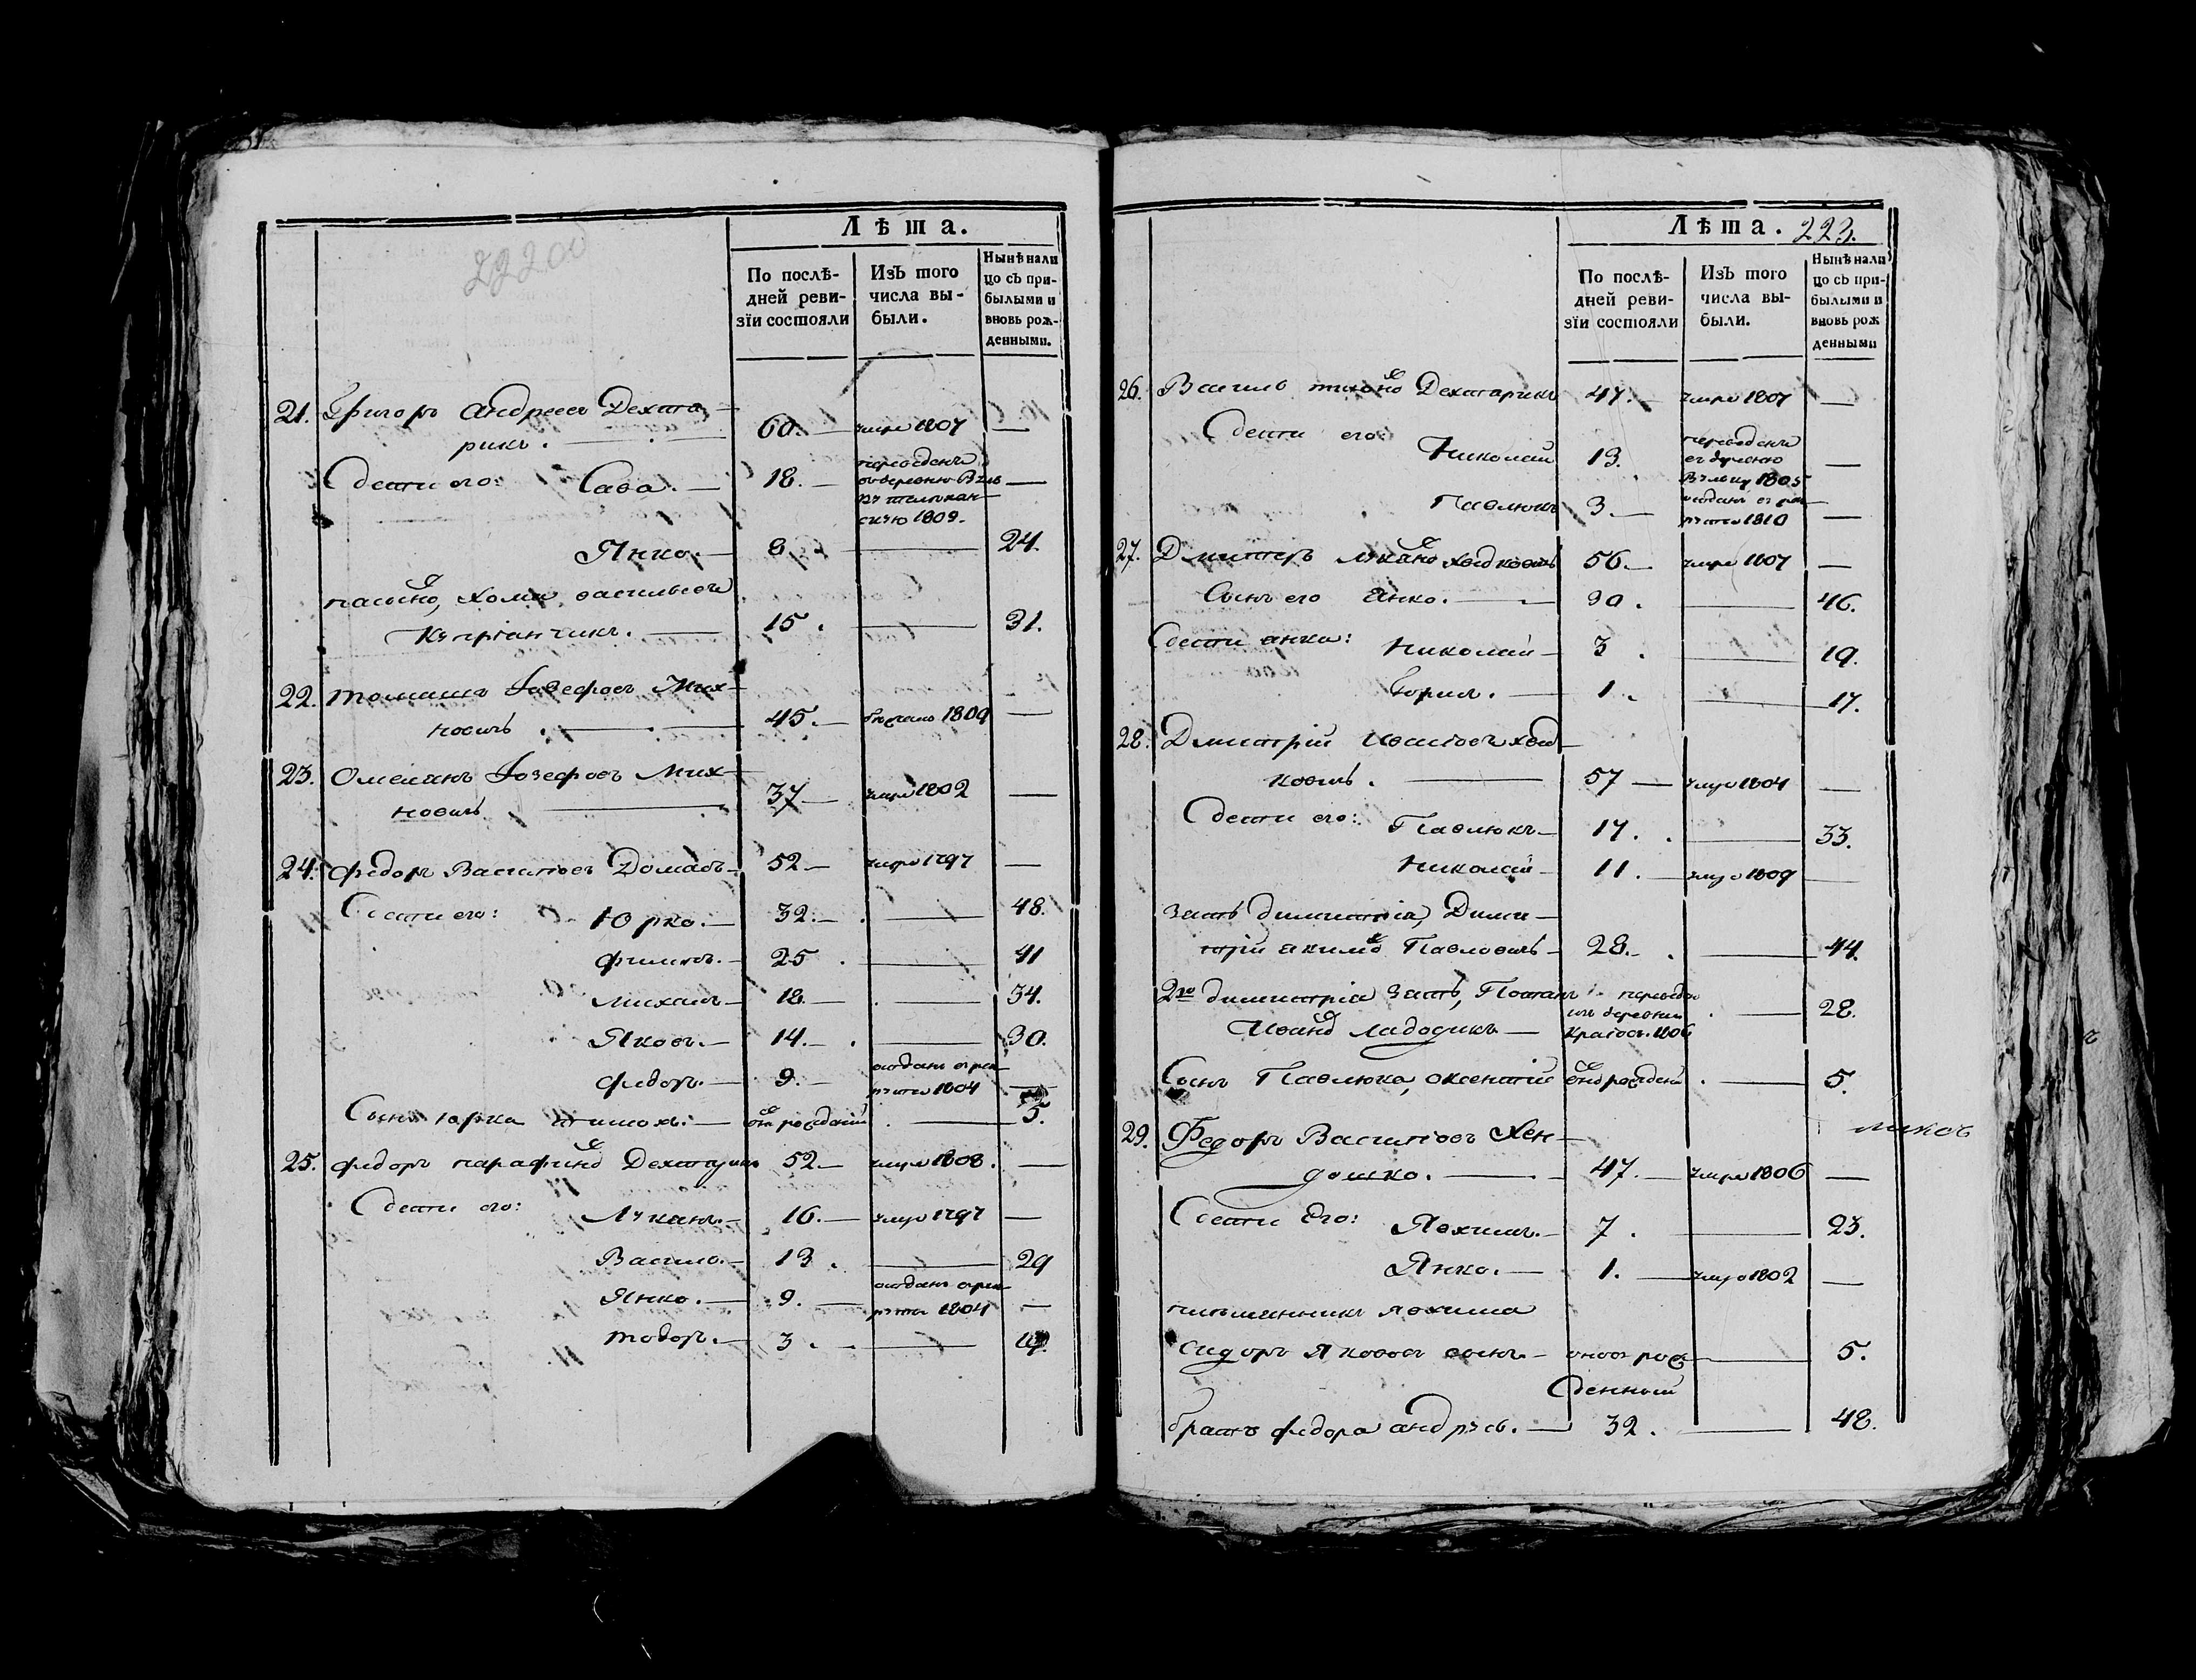 222 об
Лѣта.
По послѣ-
дней реви-
зїи состояли
Изъ того
числа вы-
были.
Нынѣ нали
цо съ при-
былыми и
вновь рож-
денными.
21. Григоръ Андреевъ Дехта-
рикъ. 60. умре 1807 —
Дети его: Сава. 18. переведенъ
въ деревню
1809. —
Янко. 8 — 24.
пасынокъ, Хома васильевъ
Купріянчикъ. 15. — 31.
22. Томашъ Іозефовъ Мих-
новичь. 45. бежалъ 1809 —
23. Омельянъ Іозефовъ Мих-
новичь 37 умре 1802 —
24. Федоръ Васильевъ 52 умре 1797 —
Дети его: Юрко. 32. — 48.
Филипъ. 25 — 41
Михаилъ 18 — 34.
Яковъ. 14. — 30.
Федоръ. 9. отданъ в рек-
руты 1804 —
Сынъ юрка Тимохъ: новорожденый — 5.
25. Федоръ парафиновъ Дехтарикъ 52 умре 1808. —
Дети его: Лукашъ. 16. умре 1797 —
Василь. 13. — 29
Янко. 9. отданъ в рек-
руты 1804 —
Тодоръ. 3. — 19.
Лѣта. 223.
По послѣ-
дней реви-
зїи состояли
Изъ того
числа вы-
были.
Нынѣ нали
цо съ при-
былыми и
вновь рож
денными
26. Василь Дехтарикъ 47. умре 1807 —
Дети его:
Николай 13. переведенъ
въ деревню
1805 —
Павлюкъ 3. отданъ в рек-
руты 1810 —
27. Дмитеръ Ходковичь 56. умре 1807 —
Сынъ его Янко. 30. — 46.
Дети янка: Николай 3. — 19.
Юрка. 1. — 17.
28. Дмитрій Ход-
ковичь. 57 умре 1804 —
Дети его: Павлюкъ 17. — 33.
Николай 11. умре 1809 —
зять димитрія, Дими-
трій Павловичь 28. — 44.
2го димитрія зять, Потапъ переведенъ
изъ деревни
Ивановъ Ладодикъ 1806 — 28.
Сынъ Павлюка, Оксентій новорожденый — 5.
29. Федоръ Васильевъ Хен-
дошко. 47. умре 1806 —
Дети Его: Яхимъ. 7. — 23.
Янко. 1. умре 1802 —
племянникъ Яхима
Сидоръ Яковъ сынъ новорож-
денный — 5.
братъ федора андрусь. 32. — 48.